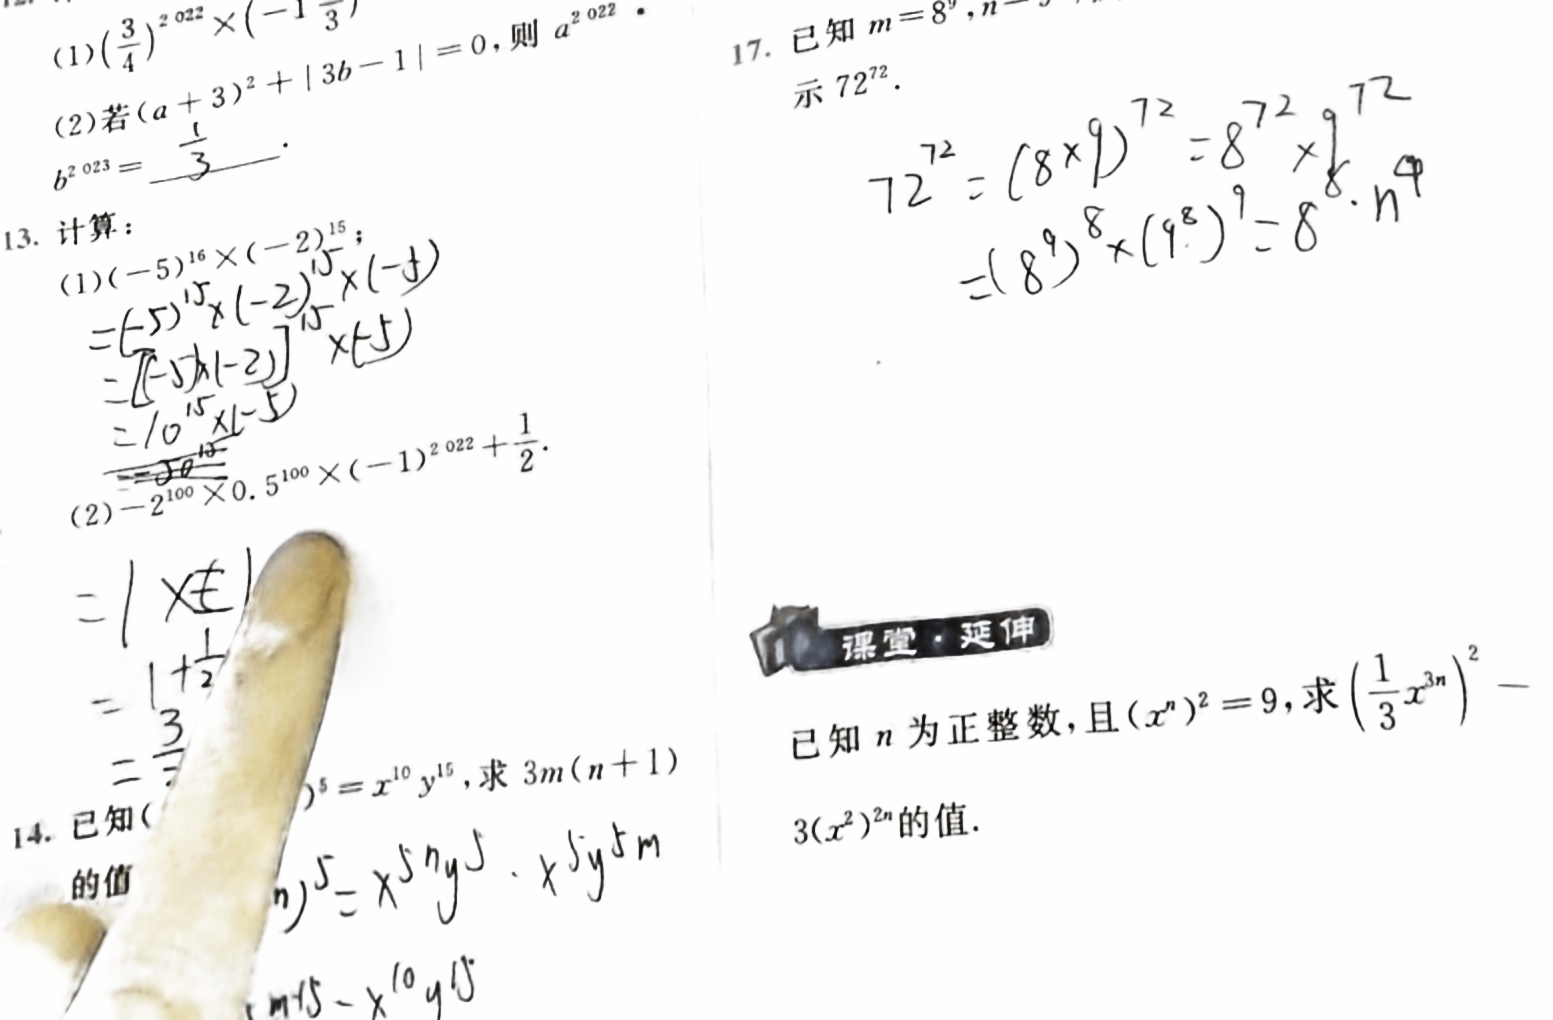 (1)(3/4)^2022×(-1 /3)
(2)若(a+3)²+|3b-1|=0,则 a^2022·
b^2023=1/3.
13. 计算:
(1)(-5)^16×(-2)^15;
=(-5)^15×(-2)^15×(-5)
=[(-5)×(-2)]^15×(-5)
=10^15×(-5)
(2)-2^100×0.5^100×(-1)^2022+1/2.
=1×
=1+1/2
=3
14. 已知( )^5=x^10 y^15,求 3m(n+1)
的值
n)^5=x^5n y^5·x^5 y^5m
m+15=x^10 y^15
17. 已知 m=8^9,n=
示 72^72.
72^72=(8×9)^72=8^72×9^72
=(8^9)^8×(9^8)^9=8^8·n^9
课堂·延伸
已知 n 为正整数,且(x^n)²=9,求(1/3 x^3n)²-
3(x²)^2n的值.